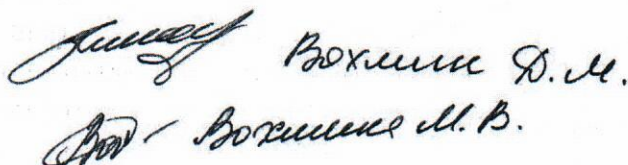 Вохмин Д.М.
Вохмина М.В.